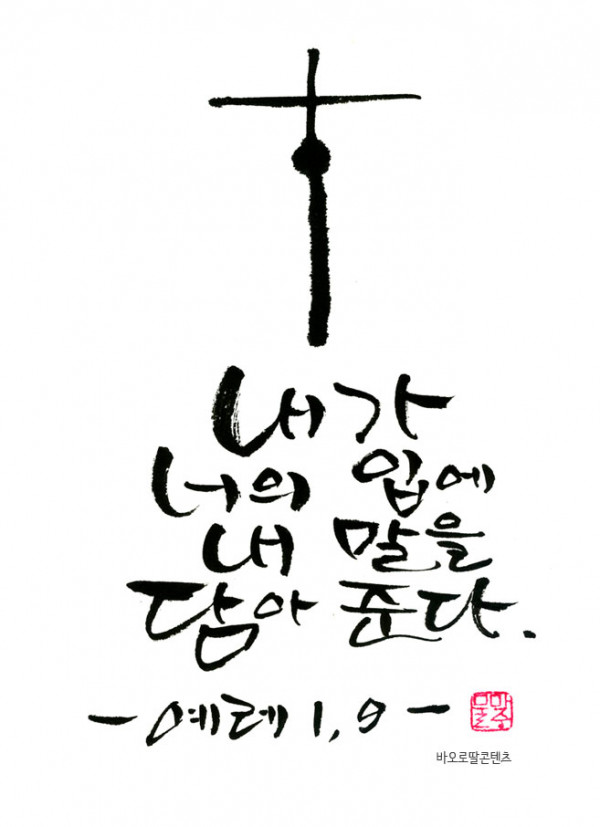 내가
너의 입에
내 말을
담아 준다.
- 예레 1, 9 -
바오로딸콘텐츠